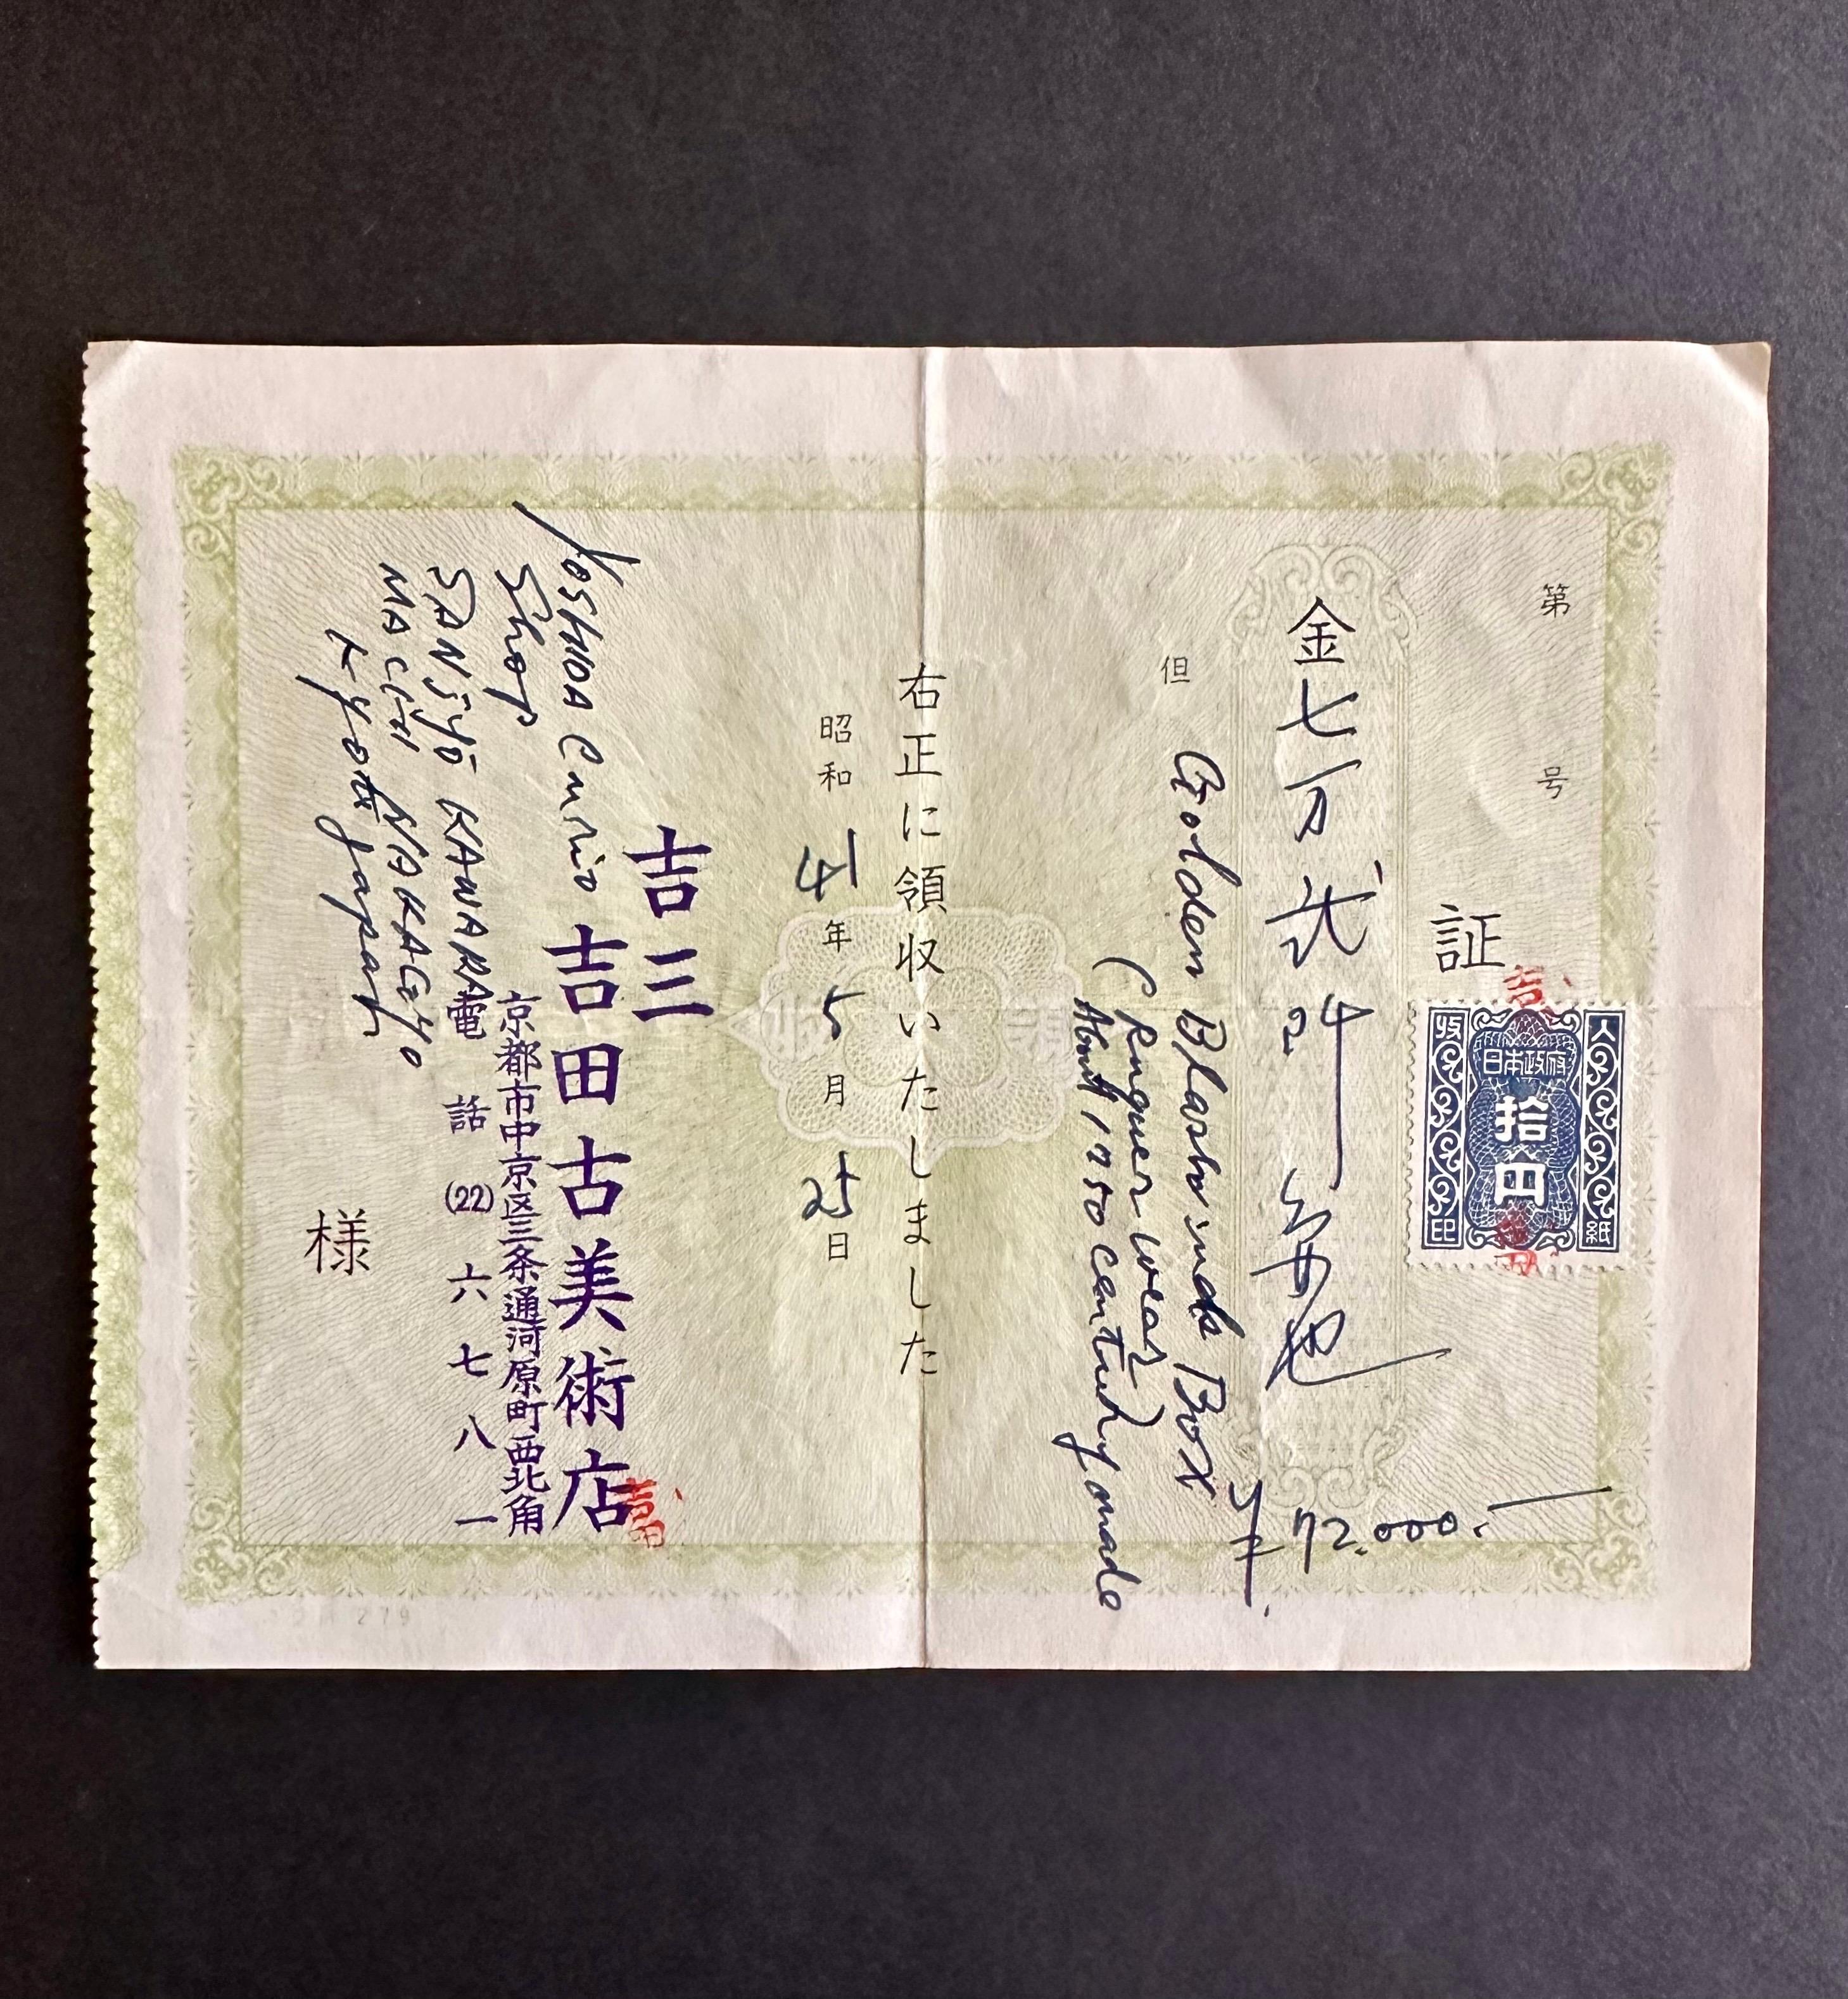 第 号
証
収入印紙
日本政府
拾円
吉田
金七万弐阡円也
¥72.000.-
但
Golden Blashwood Box
(Raquer wear)
About 1750 century made
右正に領収いたしました
昭和 41年 5月 25日
吉三
吉田古美術店
吉田
京都市中京区三条通河原町西北角
電話(22)六七八一
YOSHIDA Curio
Shop
SANJYŌ KAWARA
MACCHI NAKAGYO
KYOTO Japan
様
279